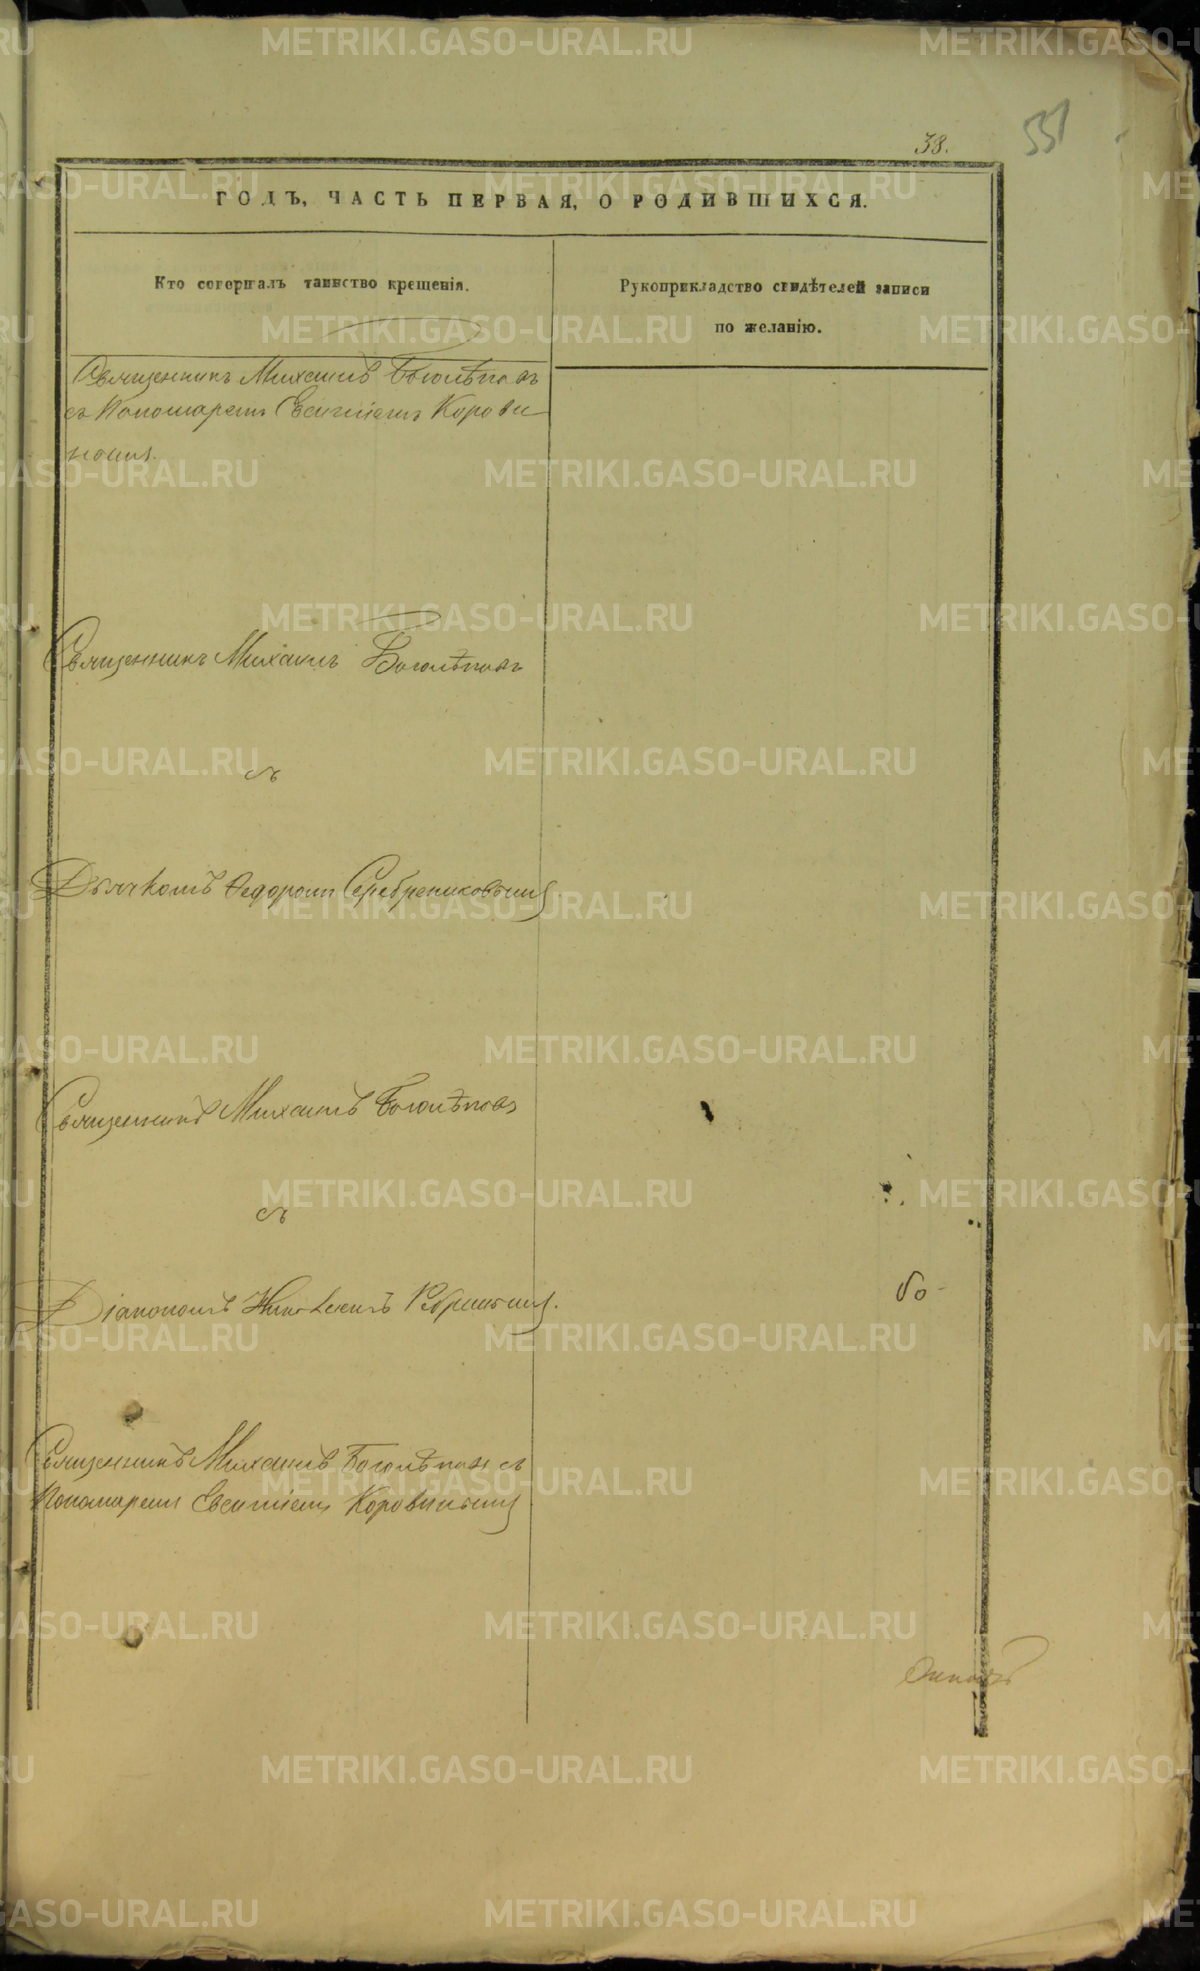 38.
551
ГОДЪ, ЧАСТЬ ПЕРВАЯ, О РОДИВШИХСЯ.
Кто совершалъ таинство крещенія.
Рукоприкладство свидѣтелей записи
по желанію.
Священникъ Михаилъ Боголѣповъ
съ Пономаремъ Евсигніемъ Корови-
нымъ.
Священникъ Михаилъ Боголѣповъ
съ
Дьячкомъ Ѳедоромъ Серебрениковымъ
Священникъ Михаилъ Боголѣповъ
съ
Діакономъ Николаемъ
Священникъ Михаилъ Боголѣповъ съ
Пономаремъ Евсигніемъ Коровинымъ
METRIKI.GASO-URAL.RU